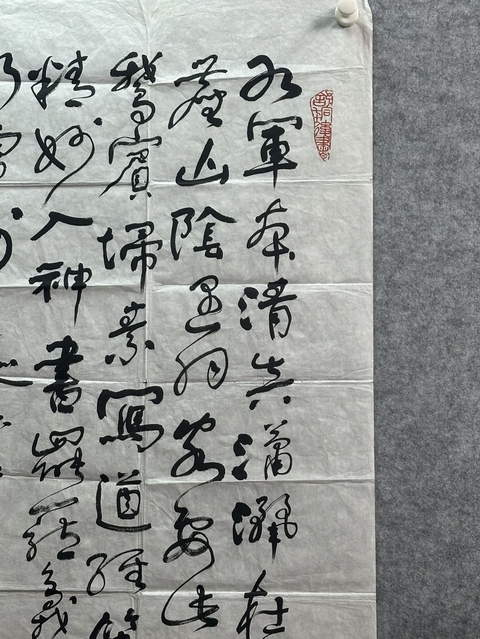 右軍本清真瀟灑在
塵山陰遇羽客要此
鵝賓埽素寫道經筆
精妙入神書罷籠鵝